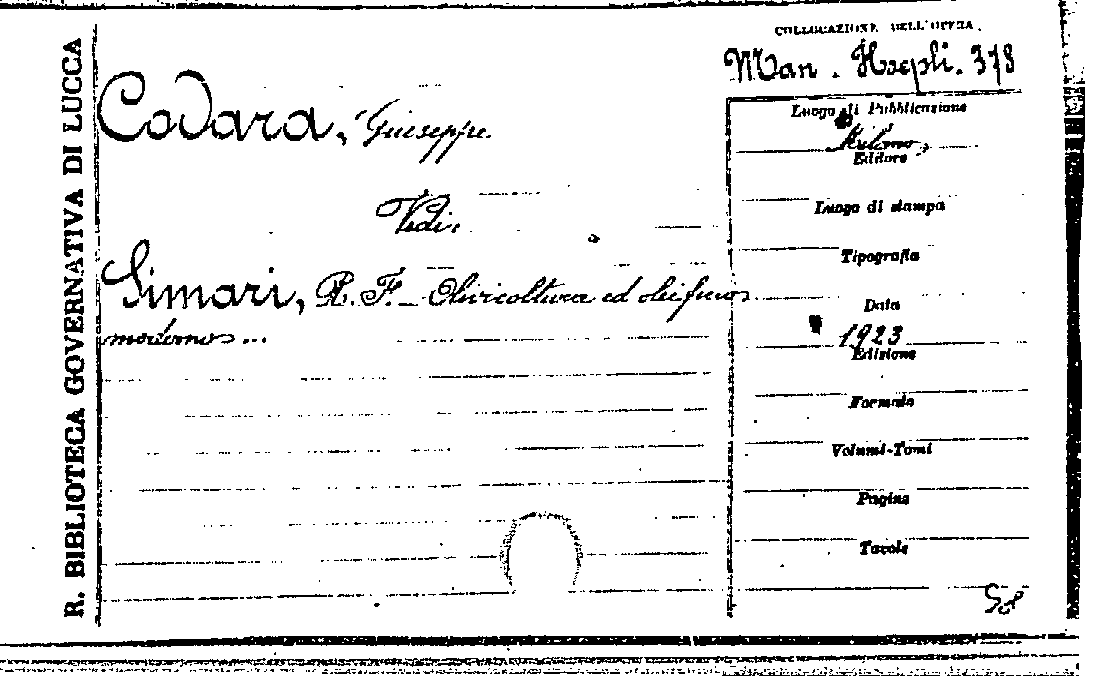 R. BIBLIOTECA GOVERNATIVA DI LUCCA
COLLOCAZIONE DELL'OPERA
Man. Hoepli. 378
Codara, Giuseppe
Vedi:
Simari, R. F. - Olivicoltura ed oleificio
moderno ...
Luogo di Pubblicazione
Milano,
Editore
Luogo di stampa
Tipografia
Data
1923
Edizione
Formato
Volumi-Tomi
Pagine
Tavole